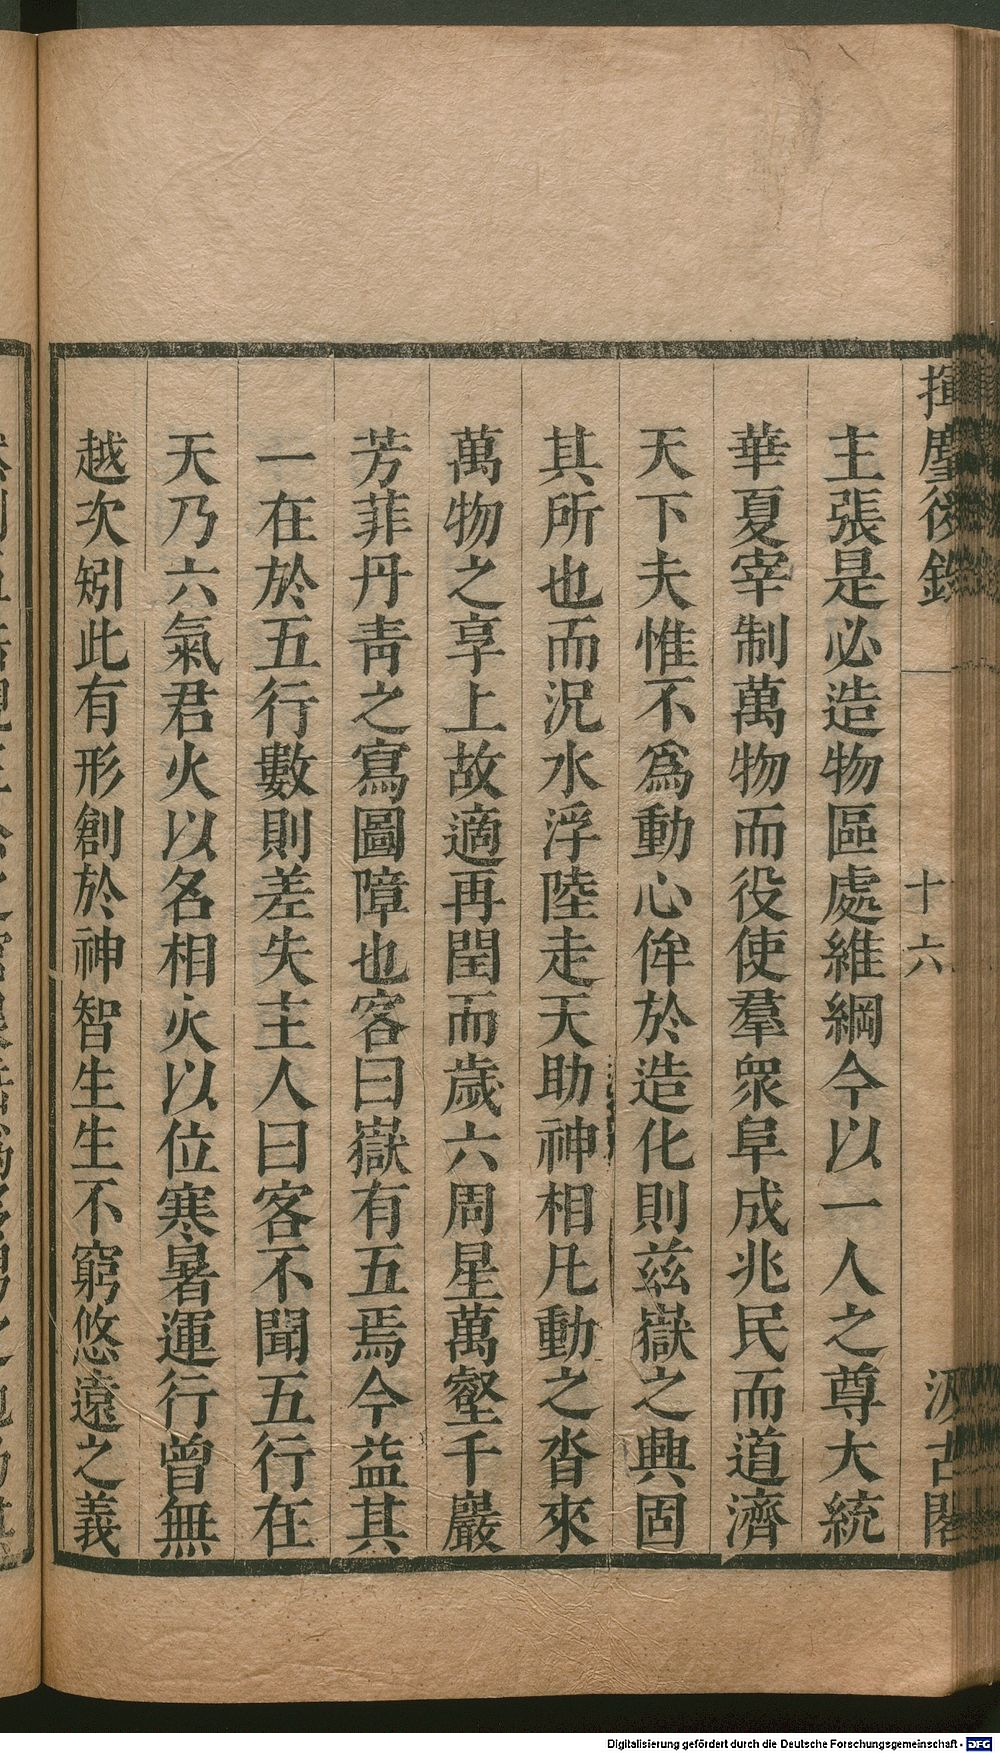 揮麈後錄
十六
汲古閣
主張是必造物區處維綱今以一人之尊大統
華夏宰制萬物而役使羣衆阜成兆民而道濟
天下夫惟不爲動心侔於造化則兹嶽之興固
其所也而況水浮陸走天助神相凡動之沓來
萬物之享上故適再閏而歲六周星萬壑千巖
芳菲丹靑之寫圖障也客曰嶽有五焉今益其
一在於五行數則差失主人曰客不聞五行在
天乃六氣君火以名相火以位寒暑運行曾無
越次矧此有形創於神智生生不窮悠遠之義
Digitalisierung gefördert durch die Deutsche Forschungsgemeinschaft - DFG